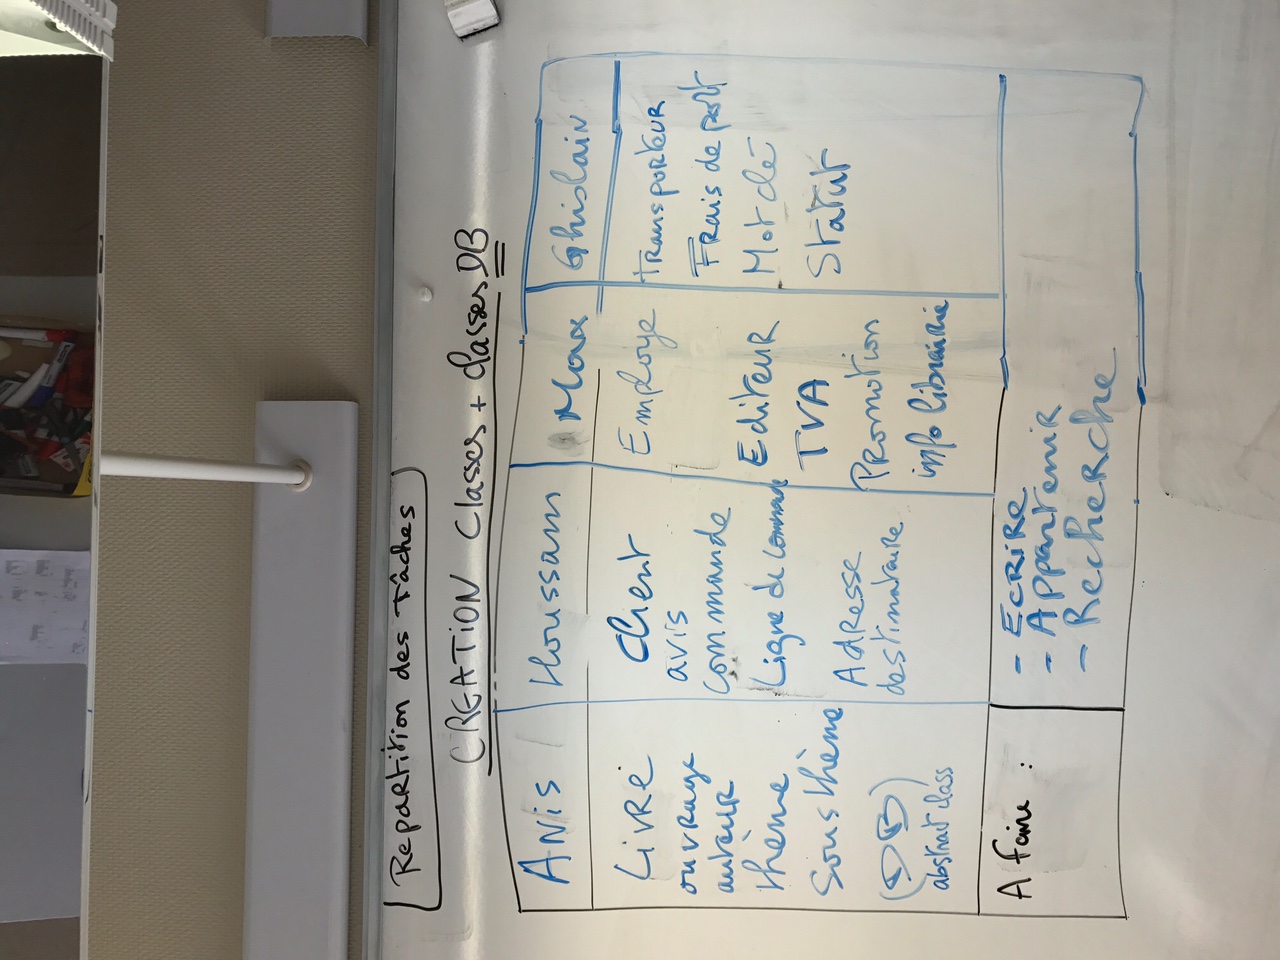 Repartition des Tâches
CREATION Classes + Classes DB
Anis
Houssam
Max
Ghislain
Livre
ouvrage
auteur
thème
Sous thème
(DB)
abstract class
Client
avis
commande
Ligne de commande
Adresse
destinataire
Employe
Editeur
TVA
Promotion
info librairie
Transporteur
Frais de port
Mot clé
Statut
A faire :
- Ecrire
- Appartenir
- Recherche